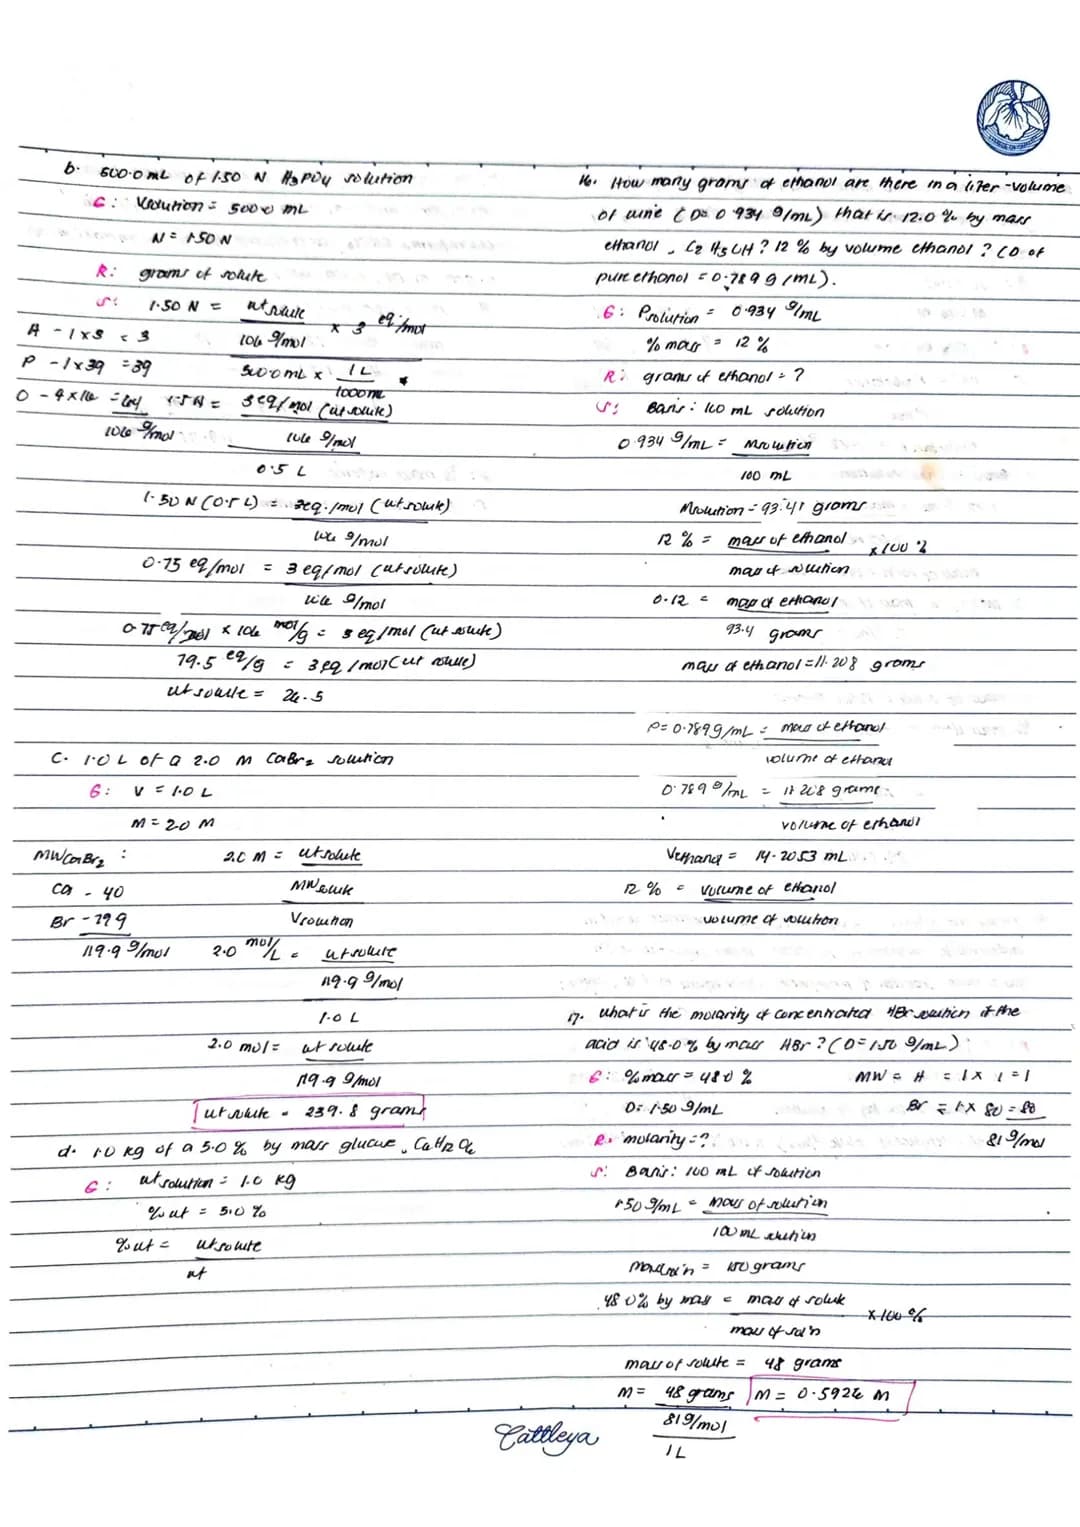 b. 500.0 mL of 1.50 N H3PO4 solution
G: Vsolution = 500.0 mL
N = 1.50 N
R: grams of solute
S: 1.50 N = wt solute
106 g/mol
x 3 eq/mol
500.0 mL x 1 L
1000 mL
A - 1x3 = 3
P - 1x39 = 39
O - 4x16 = 64
106 g/mol
1.5 N = 3 eq/mol (wt solute)
106 g/mol
0.5 L
1.50 N (0.5 L) = 3 eq./mol (wt solute)
106 g/mol
0.75 eq/mol = 3 eq/mol (wt solute)
106 g/mol
0.75 eq/mol x 106 mol/g = 3 eq/mol (wt solute)
79.5 eq/g = 3 eq/mol (wt solute)
wt solute = 26.5
C. 1.0 L of a 2.0 M CaBr2 solution
G: V = 1.0 L
M = 2.0 M
MW CaBr2 :
Ca - 40
Br - 79.9
119.9 g/mol
2.0 M = wt solute
MW solute
Vsolution
2.0 mol/L = wt solute
119.9 g/mol
1.0 L
2.0 mol = wt solute
119.9 g/mol
wt solute = 239.8 grams
d. 1.0 kg of a 5.0 % by mass glucose, C6H12O6
G: wt solution = 1.0 kg
% wt = 5.0 %
% wt = wt solute
wt
16. How many grams of ethanol are there in a liter-volume
of wine (D= 0.934 g/mL) that is 12.0 % by mass
ethanol, C2H5OH? 12 % by volume ethanol? (D of
pure ethanol = 0.789 g/mL).
G: Psolution = 0.934 g/mL
% mass = 12 %
R: grams of ethanol = ?
S: Basis: 100 mL solution
0.934 g/mL = Msolution
100 mL
Msolution = 93.41 grams
12 % = mass of ethanol x 100 %
mass of solution
0.12 = mass of ethanol
93.4 grams
mass of ethanol = 11.208 grams
P = 0.789 g/mL = mass of ethanol
volume of ethanol
0.789 g/mL = 11.208 grams
volume of ethanol
Vethanol = 14.2053 mL
12 % = volume of ethanol
volume of solution
17. What is the molarity of concentrated HBr solution if the
acid is 48.0 % by mass HBr? (D = 1.50 g/mL)
G: % mass = 48.0 %
D: 1.50 g/mL
MW = H = 1 x 1 = 1
Br = 1 x 80 = 80
81 g/mol
R: molarity = ?
S: Basis: 100 mL of solution
1.50 g/mL = mass of solution
100 mL solution
= 150 grams
48.0% by mass = mass of solute x 100 %
mass of sol'n
mass of solute = 48 grams
M = 48 grams
81 g/mol
1 L
M = 0.5926 M
Cattleya